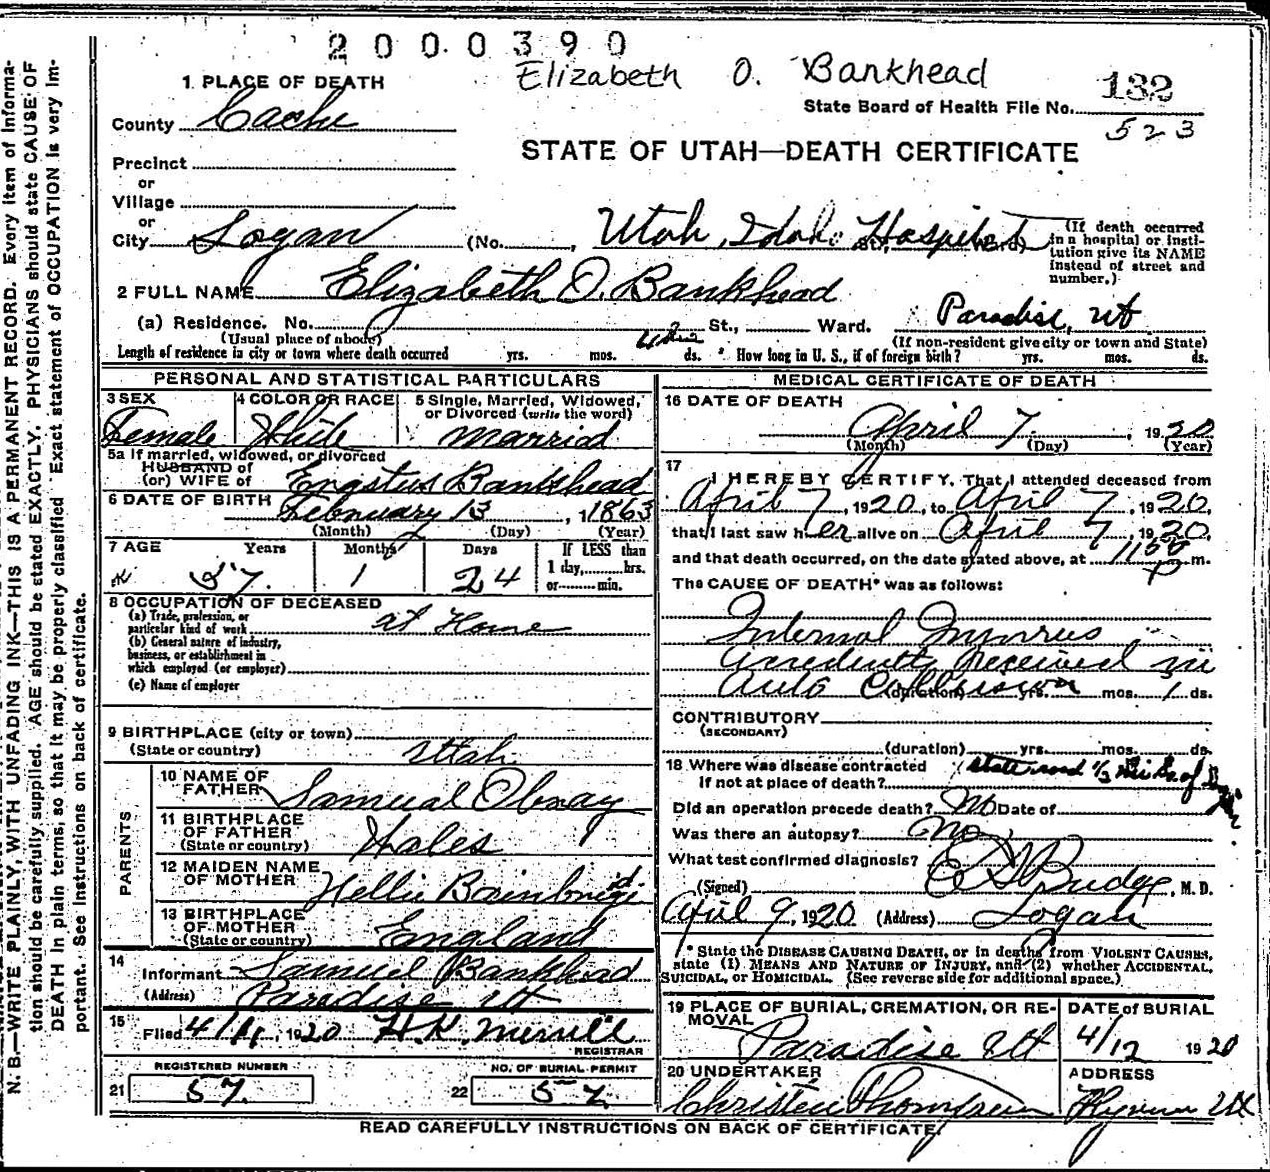 2000390
Elizabeth O. Bankhead
132
State Board of Health File No.
523
STATE OF UTAH—DEATH CERTIFICATE
1 PLACE OF DEATH
County Cache
Precinct
or
Village
or
City Logan (No. , Utah, Idah. Hospital
(If death occurred
in a hospital or insti-
tution give its NAME
instead of street and
number.)
2 FULL NAME Elizabeth O. Bankhead
(a) Residence. No. St., Ward. Paradise, Ut
(Usual place of abode) (If non-resident give city or town and State)
Length of residence in city or town where death occurred yrs. mos. ds. How long in U. S., if of foreign birth? yrs. mos. ds.
PERSONAL AND STATISTICAL PARTICULARS
3 SEX
Female
4 COLOR OR RACE
White
5 Single, Married, Widowed,
or Divorced (write the word)
Married
5a If married, widowed, or divorced
HUSBAND of
(or) WIFE of Bankhead
6 DATE OF BIRTH February 13, 1863
(Month) (Day) (Year)
7 AGE Years Months Days If LESS than
1 day, hrs.
or min.
57 1 24
8 OCCUPATION OF DECEASED
(a) Trade, profession, or
particular kind of work at Home
(b) General nature of industry,
business, or establishment in
which employed (or employer)
(c) Name of employer
9 BIRTHPLACE (city or town)
(State or country) Utah
PARENTS
10 NAME OF
FATHER Samual Obray
11 BIRTHPLACE
OF FATHER
(State or country) Wales
12 MAIDEN NAME
OF MOTHER
13 BIRTHPLACE
OF MOTHER
(State or country) England
14
Informant Samuel Bankhead
(Address) Paradise Ut
15
Filed 4/ , 1920 H.K. Merrill
REGISTRAR
REGISTERED NUMBER
21 57
NO. OF BURIAL PERMIT
22 57
MEDICAL CERTIFICATE OF DEATH
16 DATE OF DEATH
April 7, 1920
(Month) (Day) (Year)
17
I HEREBY CERTIFY, That I attended deceased from
April 7, 1920, to April 7, 1920,
that I last saw her alive on April 7, 1920,
and that death occurred, on the date stated above, at m.
The CAUSE OF DEATH* was as follows:
Internal Injuries
received in
Auto
(duration) yrs. mos. 1 ds.
CONTRIBUTORY
(SECONDARY)
(duration) yrs. mos. ds.
18 Where was disease contracted
if not at place of death? State road 1/2
Did an operation precede death? No Date of
Was there an autopsy? No
What test confirmed diagnosis?
(Signed) Budge, M. D.
April 9, 1920 (Address) Logan
* State the DISEASE CAUSING DEATH, or in deaths from VIOLENT CAUSES,
state (1) MEANS AND NATURE OF INJURY, and (2) whether ACCIDENTAL,
SUICIDAL, or HOMICIDAL. (See reverse side for additional space.)
19 PLACE OF BURIAL, CREMATION, OR RE-
MOVAL
Paradise Ut
DATE of BURIAL
4/12 1920
20 UNDERTAKER
ADDRESS
Hyrum Ut
READ CAREFULLY INSTRUCTIONS ON BACK OF CERTIFICATE
N. B.—WRITE PLAINLY, WITH UNFADING INK—THIS IS A PERMANENT RECORD. Every item of informa-
tion should be carefully supplied. AGE should be stated EXACTLY. PHYSICIANS should state CAUSE OF
DEATH in plain terms, so that it may be properly classified. Exact statement of OCCUPATION is very im-
portant. See instructions on back of certificate.